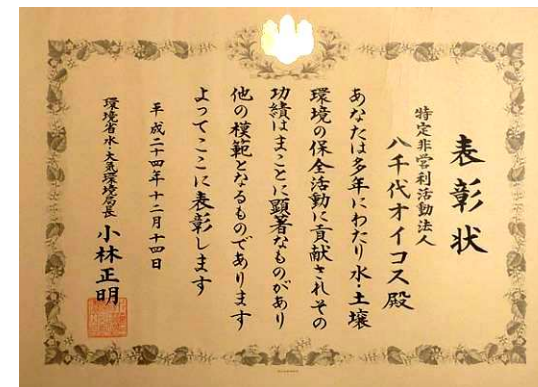 表彰状
特定非営利活動法人
八千代オイコス殿
あなたは多年にわたり水・土壌
環境の保全活動に貢献されその
功績はまことに顕著なものがあり
他の模範となるものであります
よってここに表彰します
平成二十四年十二月十四日
環境省水・大気環境局長 小林正明